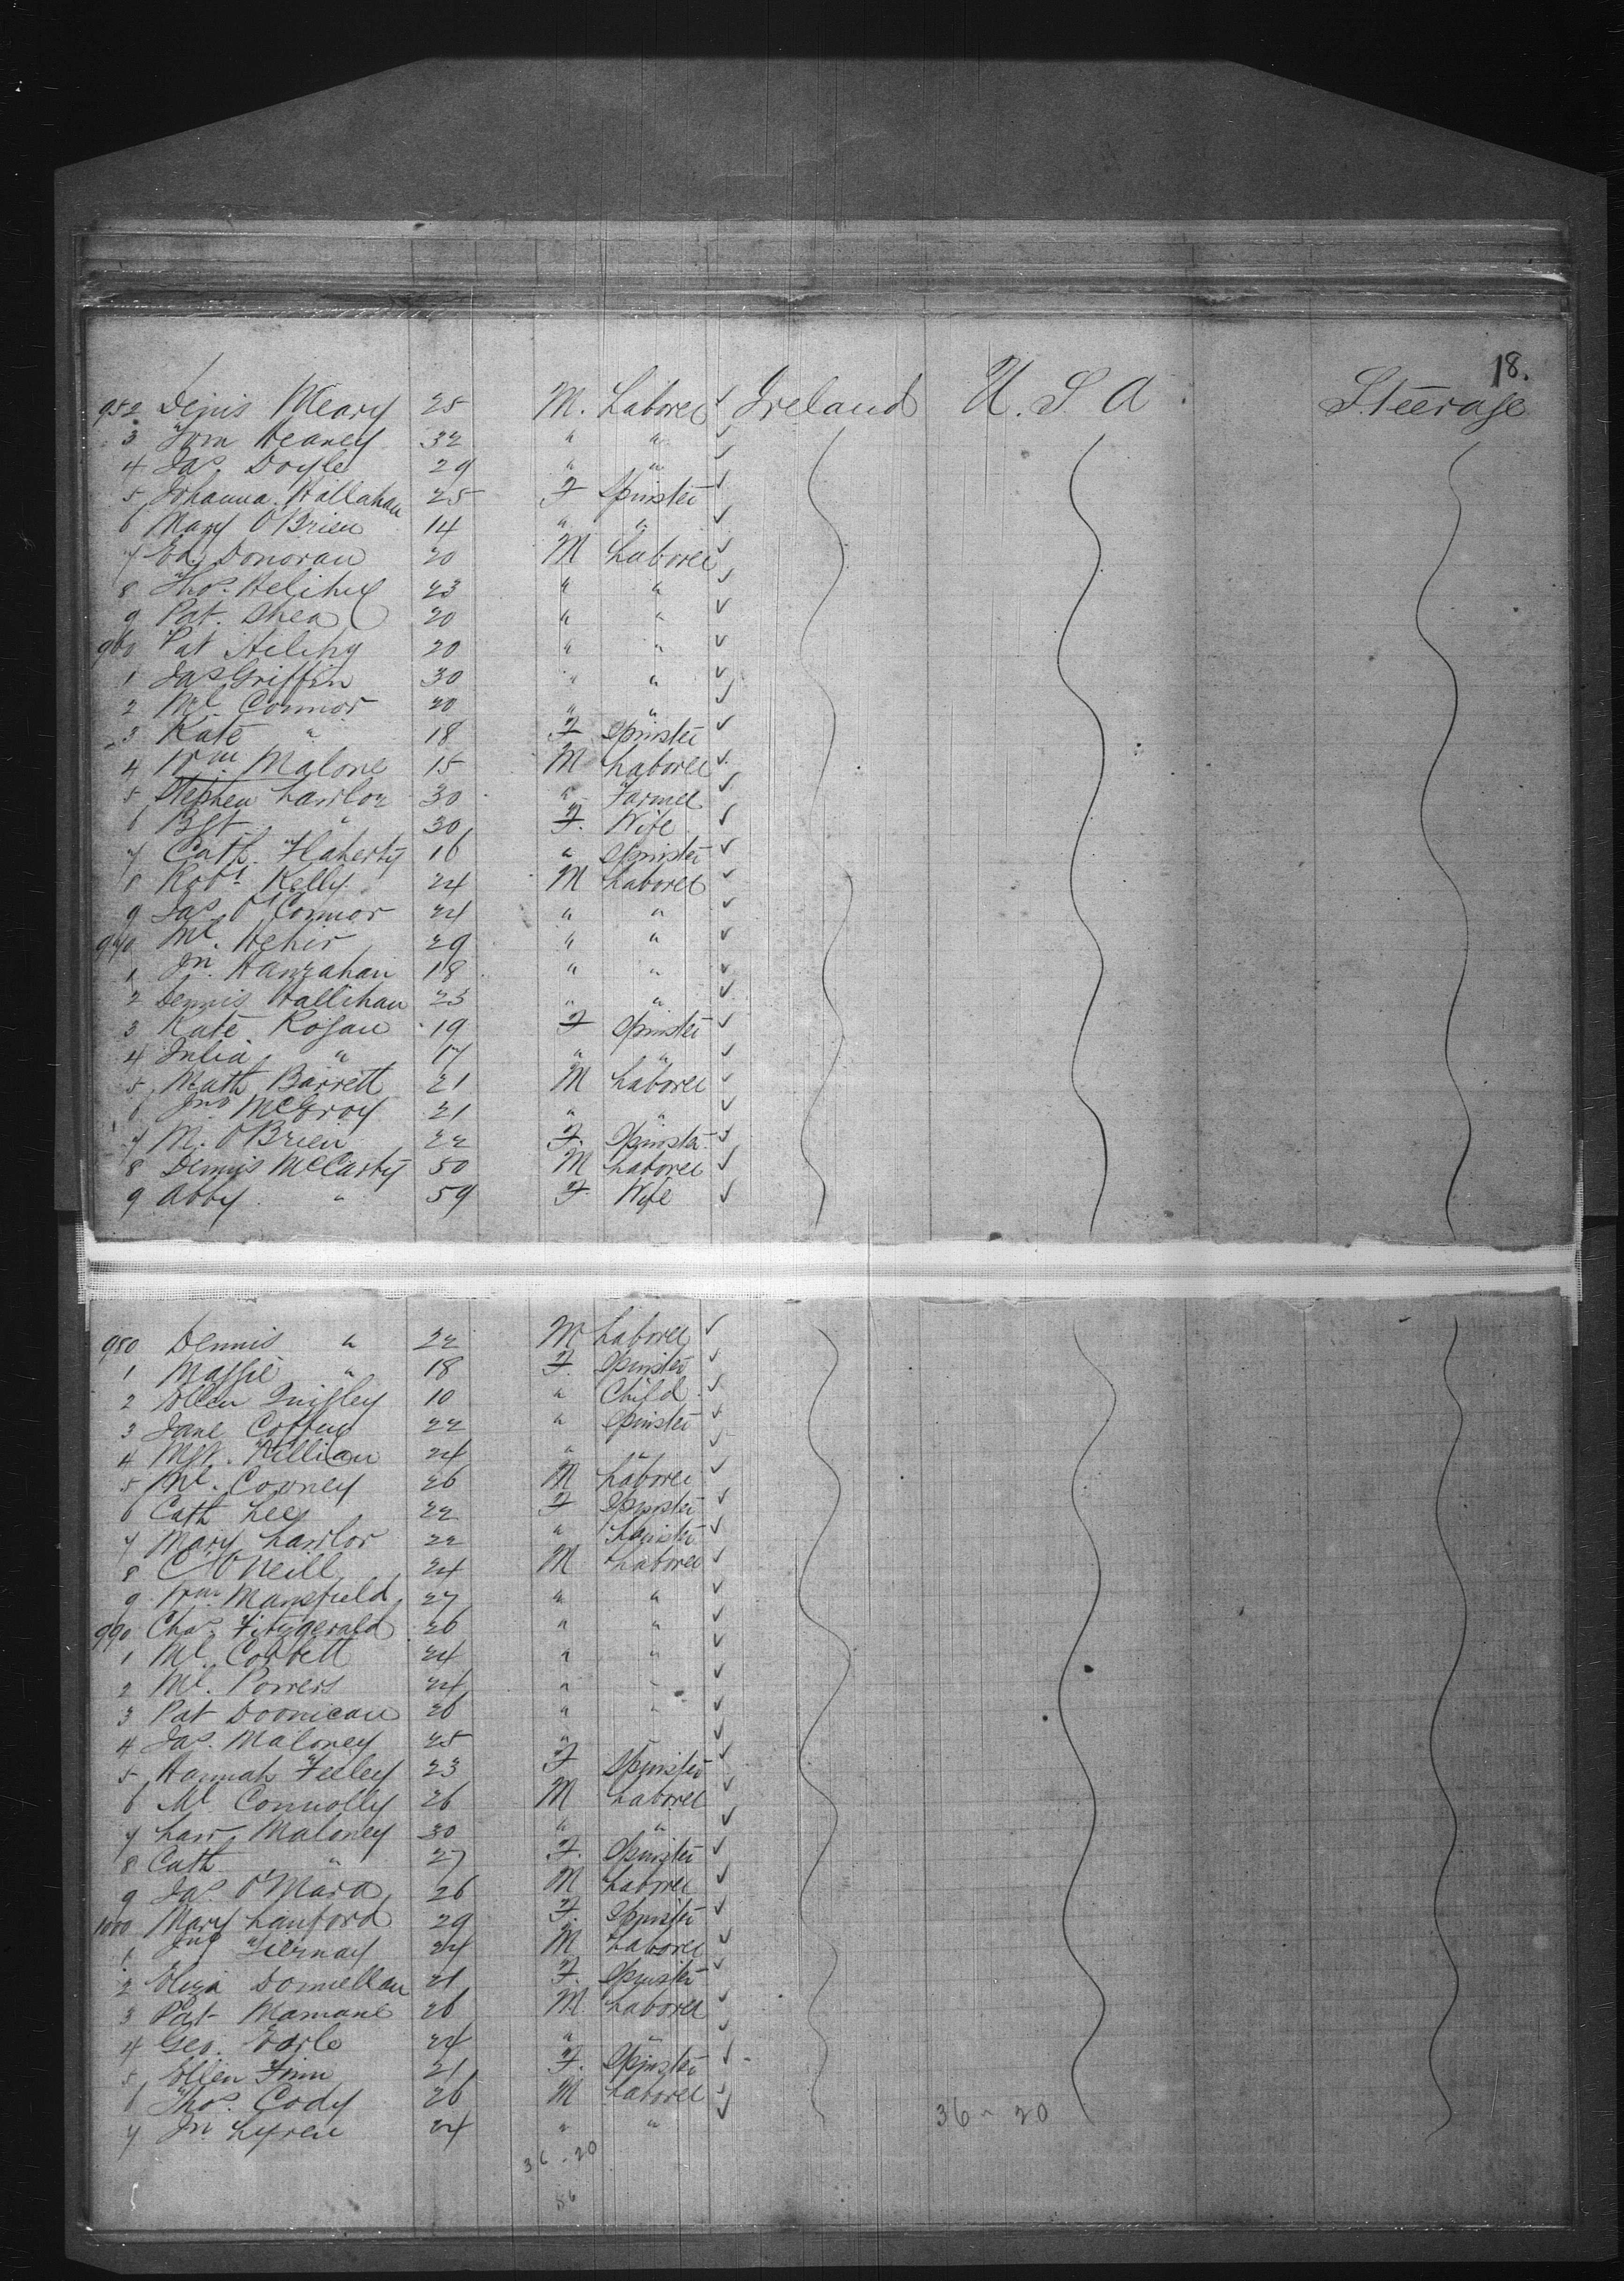 18.
952 Denis Neary 25 M. Laborer ✓ Ireland U. S A. Steerage
3 Tom Heaney 32 " " ✓
4 Jas. Doyle 29 " " ✓
5 Johanna Hallahan 25 F Spinster ✓
6 Mary O'Brien 14 " " ✓
7 Ed. Donovan 20 M Laborer ✓
8 Thos. Helihy 23 " " ✓
9 Pat. Shea 20 " " ✓
960 Pat Helihy 20 " " ✓
1 Jas Griffin 30 " " ✓
2 Ml. Connor 20 " " ✓
3 Kate " 18 F Spinster ✓
4 Wm Malone 15 M Laborer ✓
5 Stephen Lawlor 30 " Farmer ✓
6 Bgt " 30 F. Wife ✓
7 Cath. Flaherty 16 " Spinster ✓
8 Robt. Kelly 24 M Laborer ✓
9 Jas. O'Connor 24 " " ✓
970 Ml. Hehir 29 " " ✓
1 Jn. Hanrahan 18 " " ✓
2 Dennis Hallihan 23 " " ✓
3 Kate Rogan 19 F Spinster ✓
4 Julia " 17 " " ✓
5 Math Barrett 21 M Laborer ✓
6 Jno McGroy 21 " " ✓
7 M. O'Brien 22 F. Spinster ✓
8 Dennis McCarty 50 M Laborer ✓
9 Abby " 59 F Wife ✓
980 Dennis " 22 M Laborer ✓
1 Maggie " 18 F. Spinster ✓
2 Ellen Quigley 10 " Child ✓
3 Jane Coffey 22 " Spinster ✓
4 Mgt. Killian 24 " " ✓
5 Ml. Cooney 26 M Laborer ✓
6 Cath Lee 22 F Spinster ✓
7 Mary Lawlor 22 " Spinster ✓
8 C O'Neill 24 M Laborer ✓
9 Wm Mansfield 27 " " ✓
990 Chas. Fitzgerald 26 " " ✓
1 Ml. Corbett 24 " " ✓
2 Ml. Powers 24 " " ✓
3 Pat Doonican 26 " " ✓
4 Jas. Maloney 25 " " ✓
5 Hannah Feeley 23 F Spinster ✓
6 Ml Connolly 26 M Laborer ✓
7 Law. Maloney 30 " " ✓
8 Cath " 27 F. Spinster ✓
9 Jas. O'Mara 26 M Laborer ✓
1000 Mary Lanford 29 F. Spinster ✓
1 Jno Tiernay 24 M Laborer ✓
2 Eliza Donnellan 21 F. Spinster ✓
3 Pat Mamane 26 M Laborer ✓
4 Geo. Earle 24 " " ✓
5 Ellen Finn 21 F. Spinster ✓
6 Thos. Cody 26 M Laborer ✓
7 Jn. Lyren 24 " " ✓
36 - 20
36 - 20
56